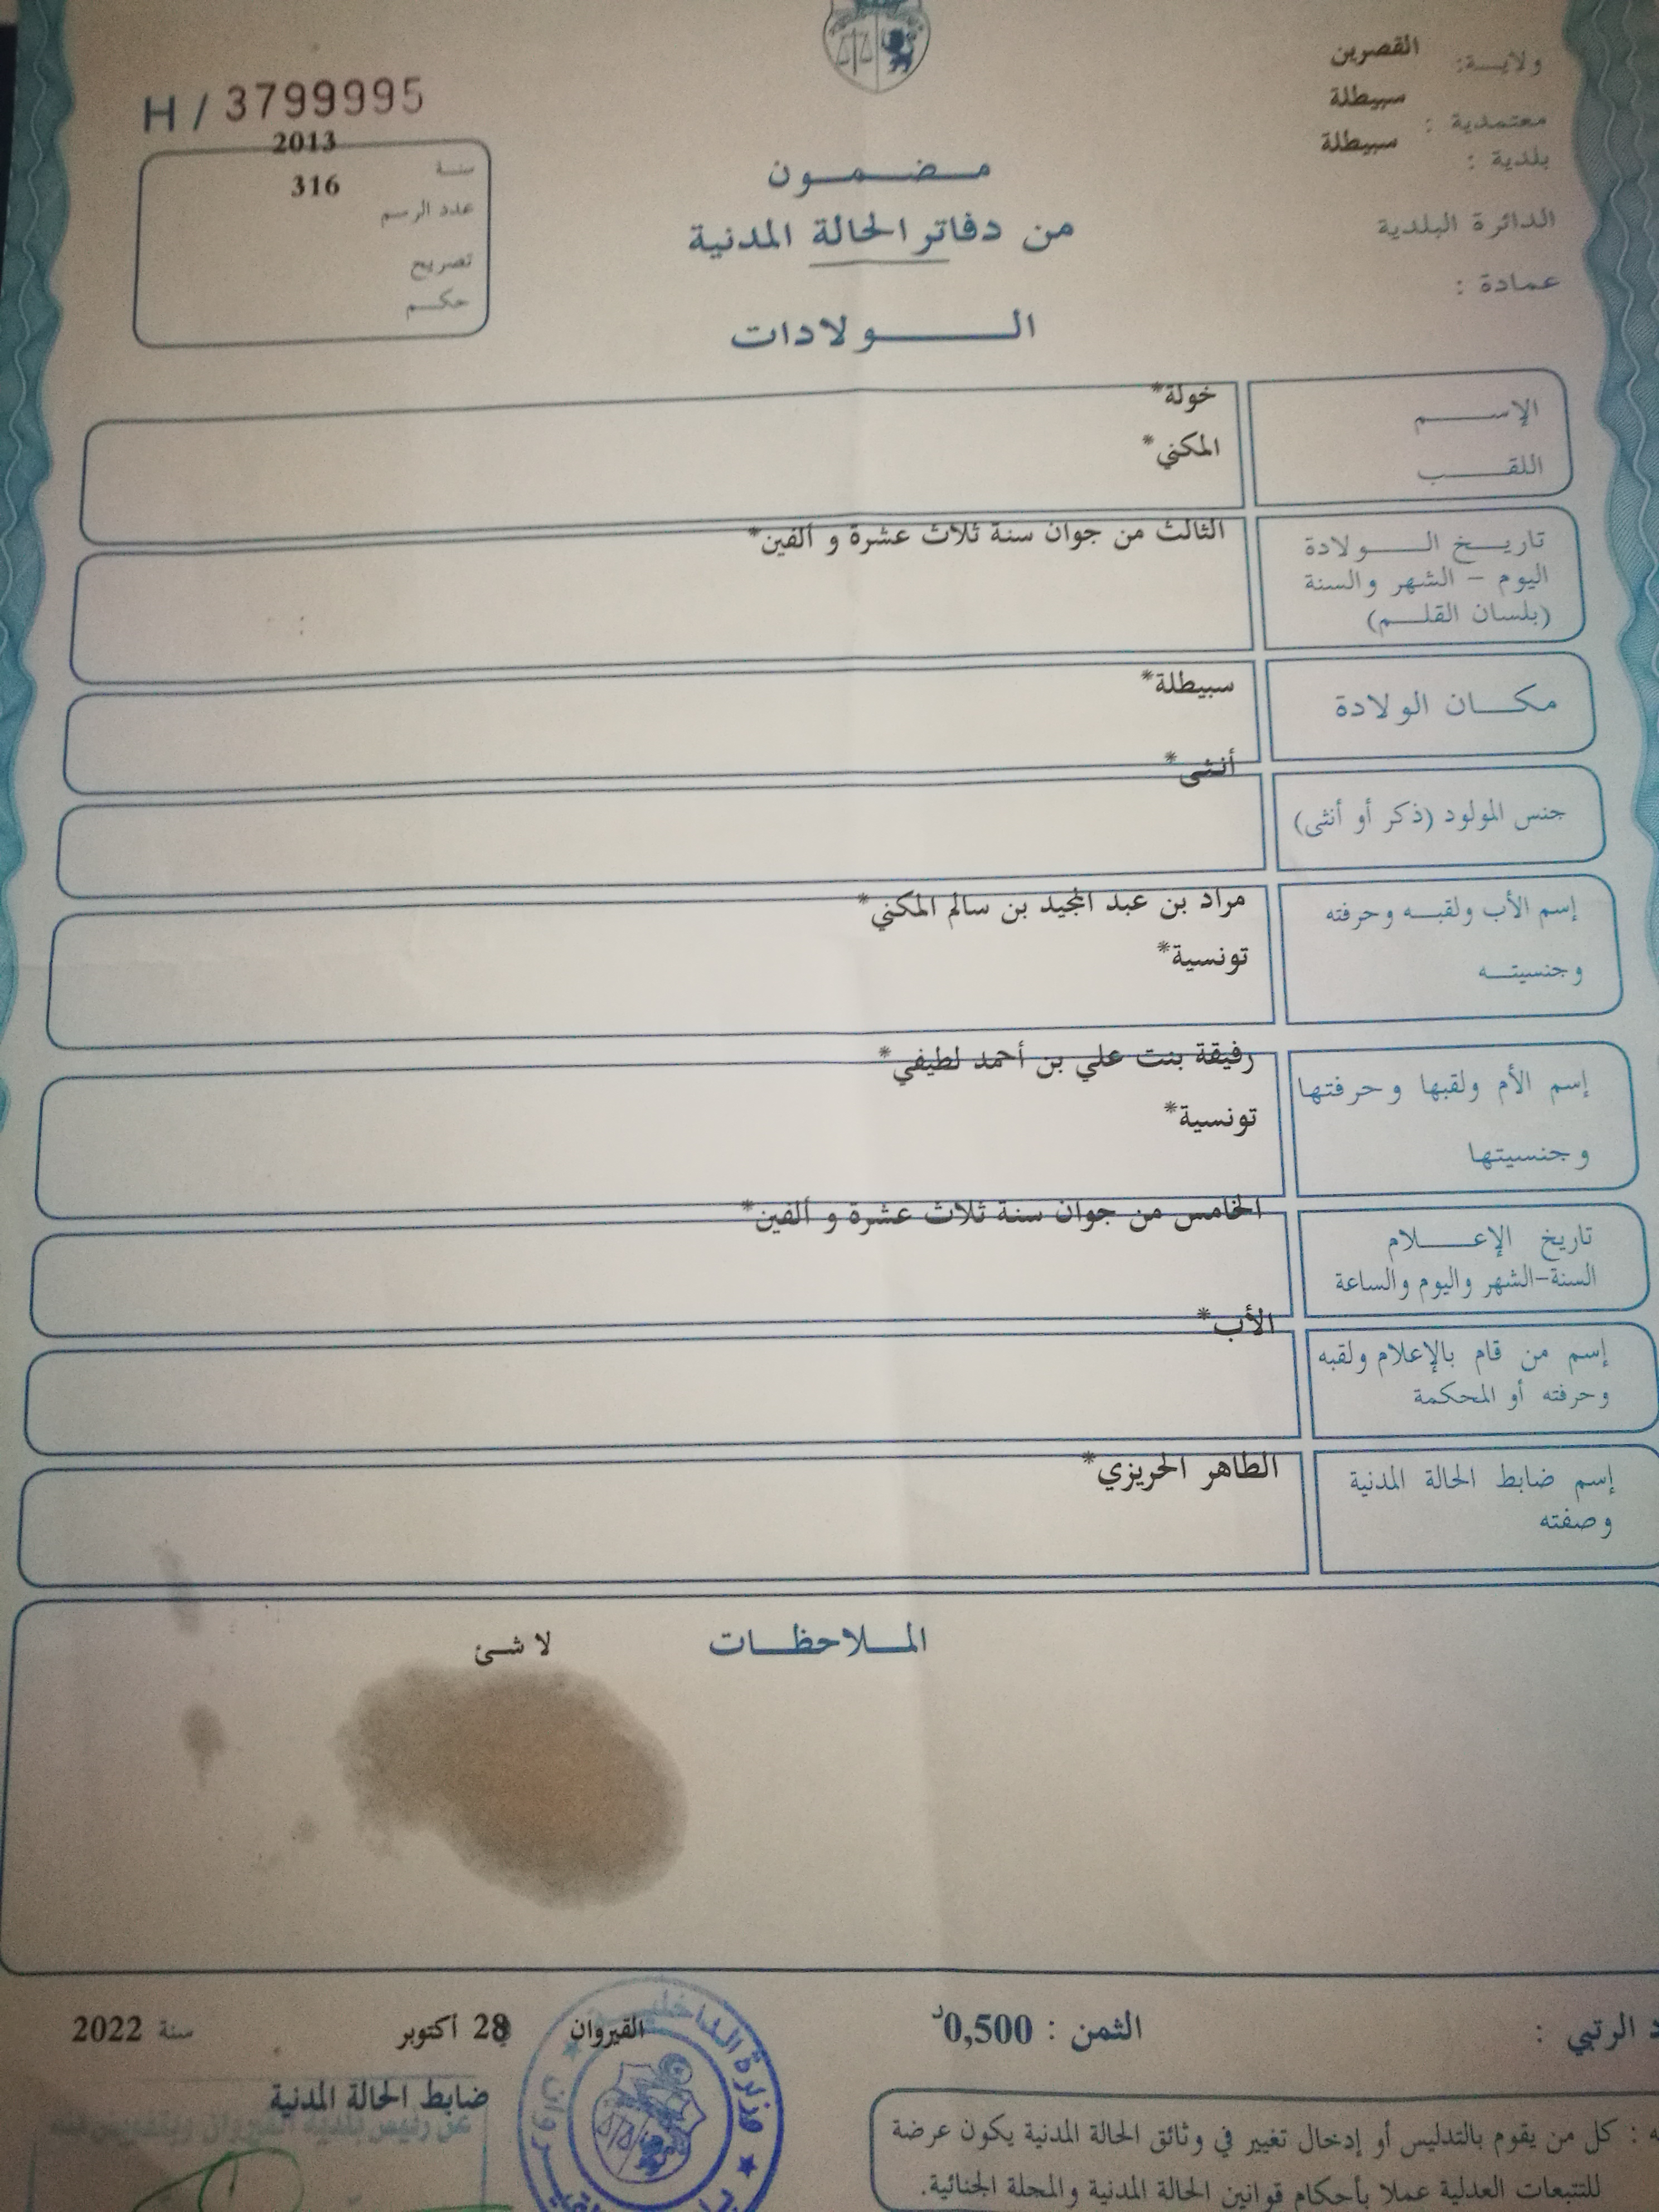 ولاية: القصرين
معتمدية : سبيطلة
بلدية : سبيطلة
الدائرة البلدية
عمادة :
H / 3799995
سنة 2013
عدد الرسم 316
تصريح
حكم
مضمون
من دفاتر الحالة المدنية
الولادات
الإسم خولة*
اللقب المكني*
تاريخ الولادة الثالث من جوان سنة ثلاث عشرة و ألفين*
اليوم – الشهر والسنة
(بلسان القلم)
مكان الولادة سبيطلة*
جنس المولود (ذكر أو أنثى) أنثى*
إسم الأب ولقبه وحرفته مراد بن عبد المجيد بن سالم المكني*
وجنسيته تونسية*
إسم الأم ولقبها وحرفتها رفيقة بنت علي بن أحمد لطيفي*
وجنسيتها تونسية*
تاريخ الإعلام الخامس من جوان سنة ثلاث عشرة و ألفين*
السنة-الشهر واليوم والساعة
إسم من قام بالإعلام ولقبه الأب*
وحرفته أو المحكمة
إسم ضابط الحالة المدنية الطاهر الحريزي*
وصفته
الملاحظات لا شئ
الرتبي : الثمن : 0,500د القيروان 28 أكتوبر سنة 2022
ضابط الحالة المدنية
عن رئيس بلدية القيروان وبتفويض منه
وزارة الداخلية
: كل من يقوم بالتدليس أو إدخال تغيير في وثائق الحالة المدنية يكون عرضة
للتتبعات العدلية عملا بأحكام قوانين الحالة المدنية والمجلة الجنائية.